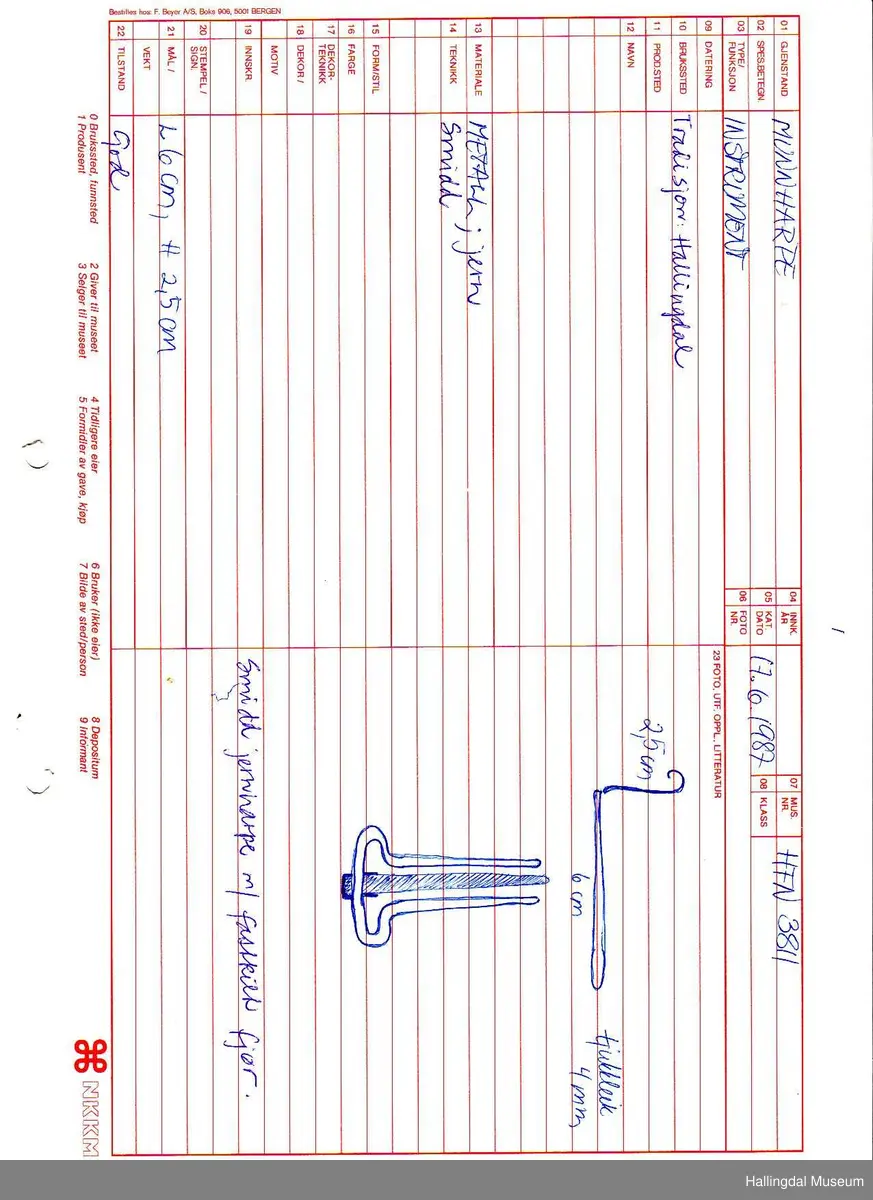 01 GJENSTAND MUNNHARPE
02 SPES.BETEGN.
03 TYPE/ FUNKSJON INSTRUMENT
04 INNK. ÅR
05 KAT. DATO 17.6.1987
06 FOTO NR.
07 MUS. NR. HFN 3811
08 KLASS
09 DATERING
10 BRUKSSTED Tradisjon: Hallingdal
11 PROD.STED
12 NAVN
13 MATERIALE METALL; jern
14 TEKNIKK Smidd
15 FORM/STIL
16 FARGE
17 DEKOR- TEKNIKK
18 DEKOR/
MOTIV
19 INNSKR.
20 STEMPEL / SIGN.
21 MÅL / L 6 cm, H 2,5 cm
VEKT
22 TILSTAND God
23 FOTO, UTF. OPPL., LITTERATUR
2,5 cm
6 cm
tjukkleik
4 mm
Smidd jernharpe m/ fastkilt fjør.
0 Brukssted, funnsted
1 Produsent
2 Giver til museet
3 Selger til museet
4 Tidligere eier
5 Formidler av gave, kjøp
6 Bruker (ikke eier)
7 Bilde av sted/person
8 Depositum
9 Informant
NKKM
Bestilles hos: F. Beyer A/S, Boks 906, 5001 BERGEN
Hallingdal Museum